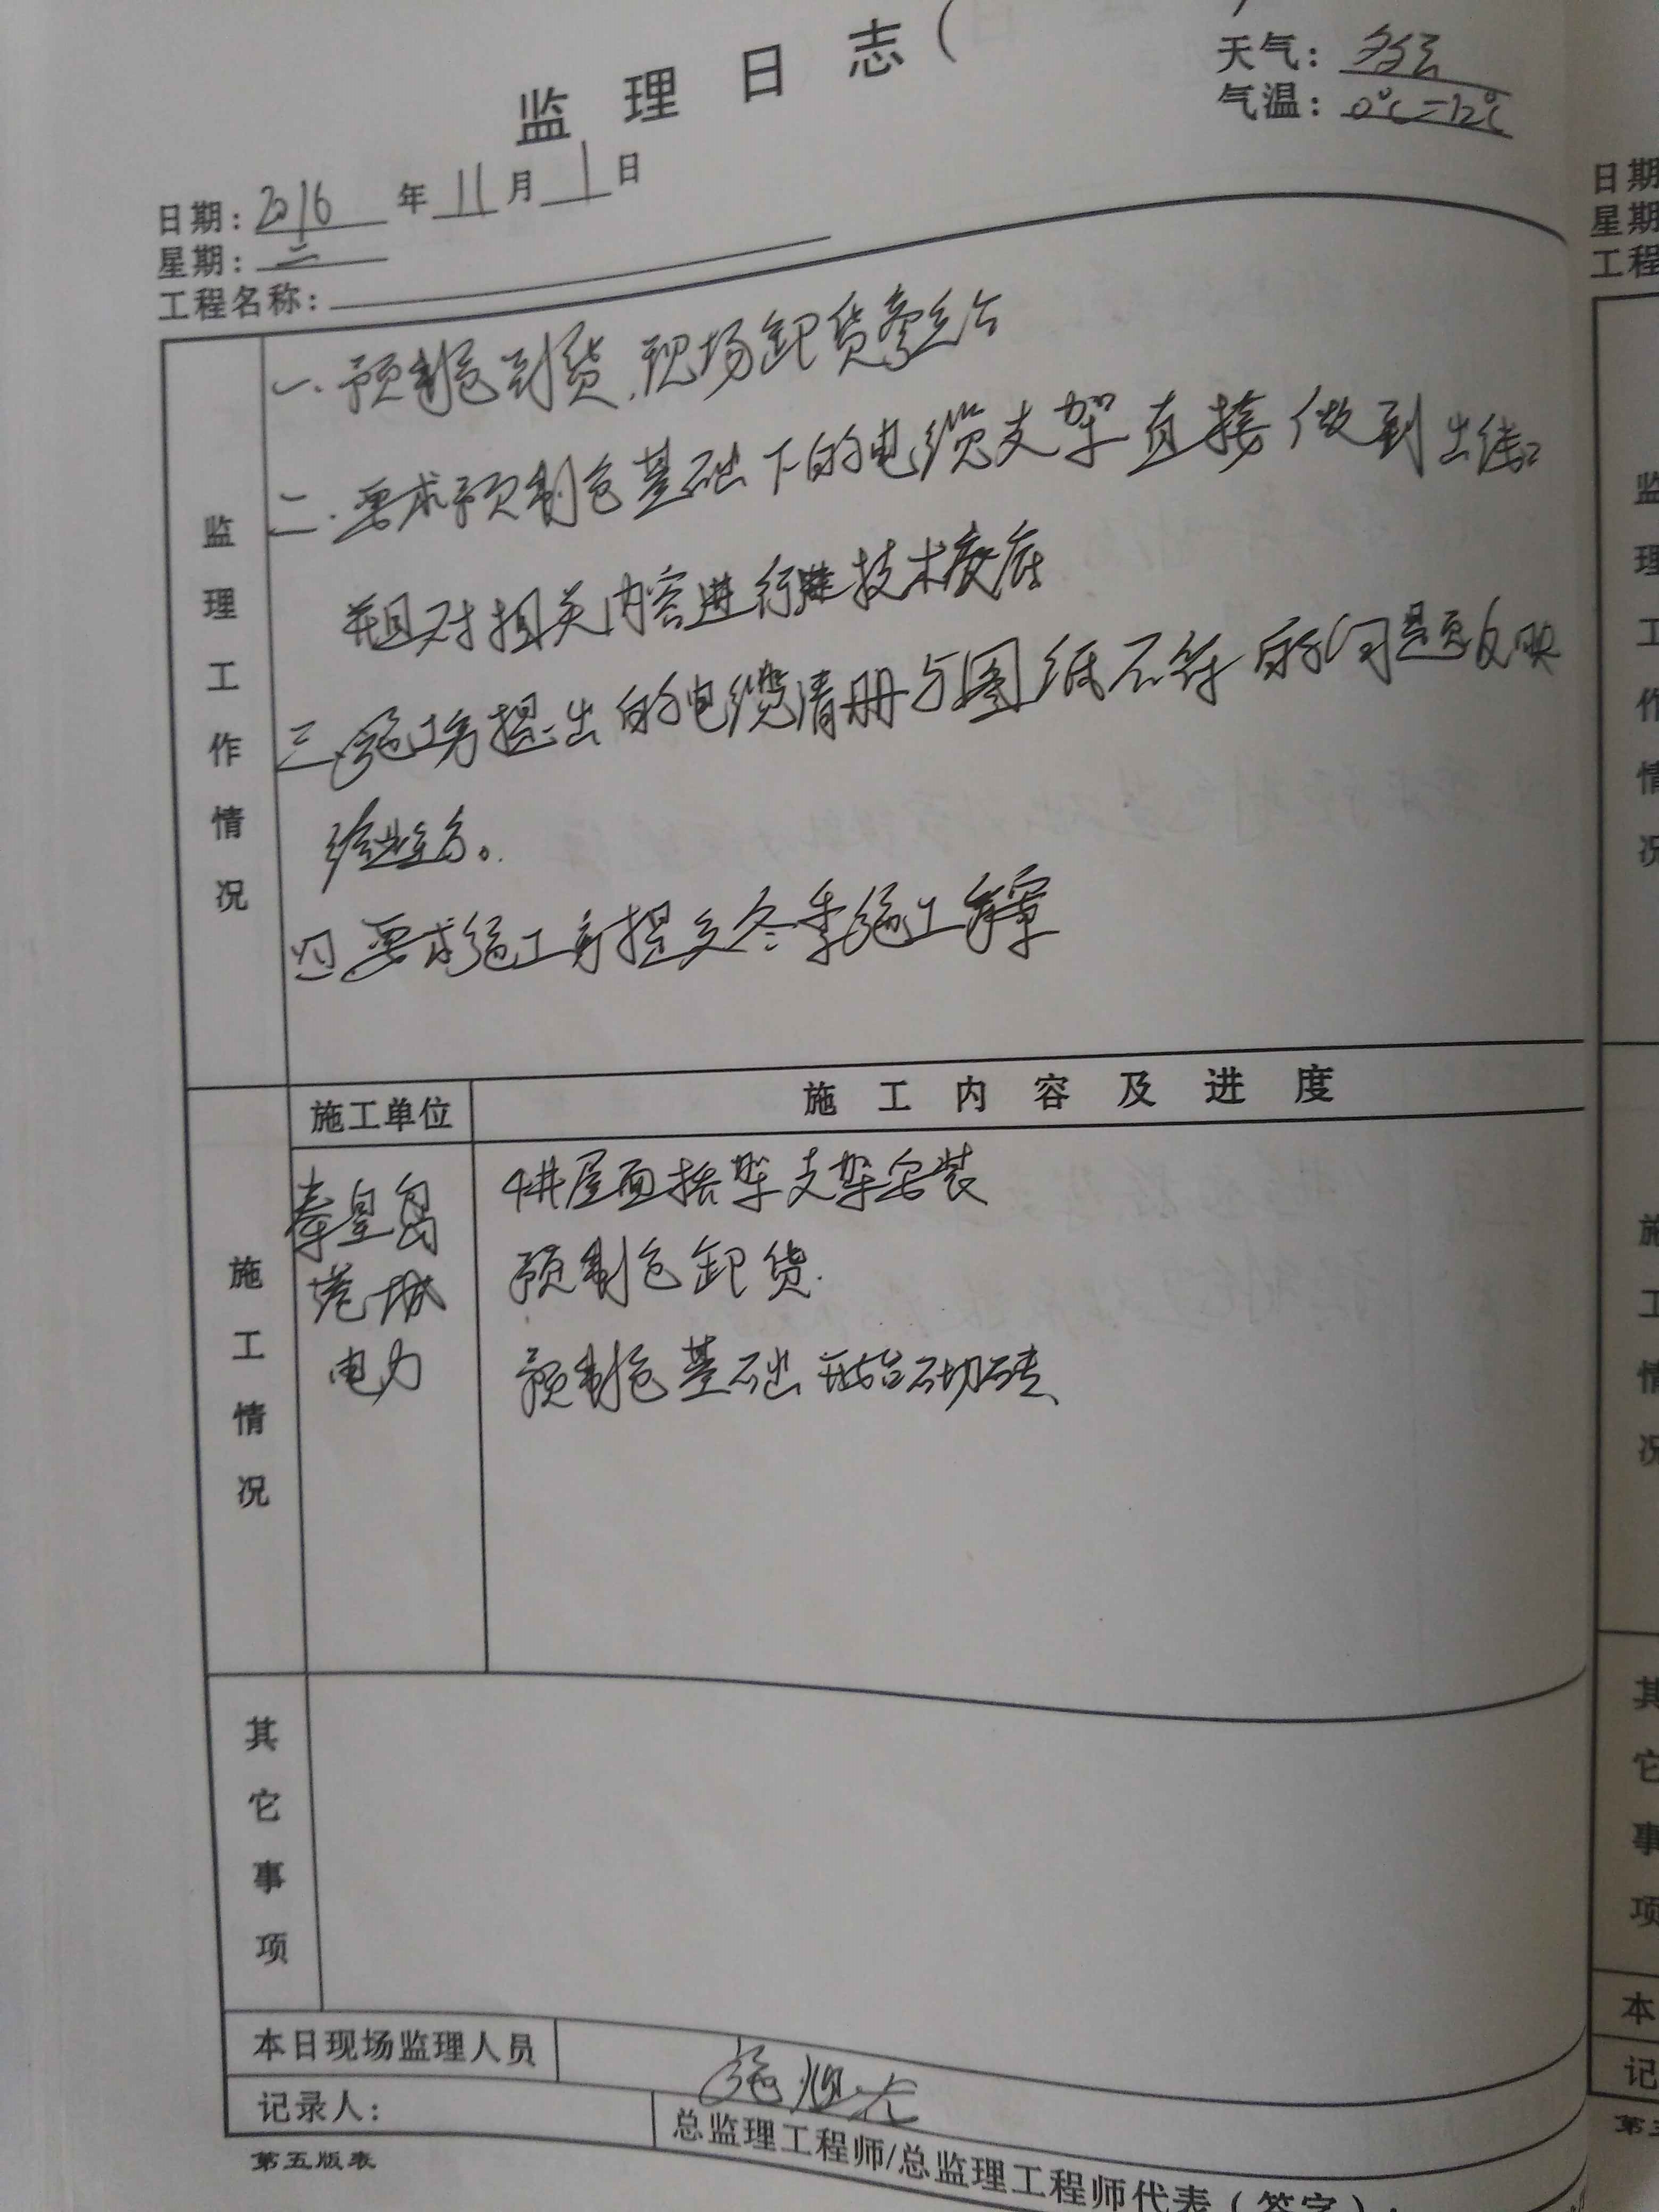 监理日志(
天气：多云
气温：0℃=12℃
日期：2016年11月1日
星期：二
工程名称：
监理工作情况
一.预制仓到货.现场卸货
二.要求预制仓基础下的电缆支架直接做到出线口
并且对相关内容进行技术交底
三.施工方提出的电缆清册与图纸不符的问题反映
给业主方。
四.要求施工方提交冬季施工方案
施工情况
施工单位
施工内容及进度
秦皇岛
港城
电力
4#屋面搭架支架安装
预制仓卸货.
预制仓基础开始砌砖、
其它事项
本日现场监理人员
记录人：
总监理工程师/总监理工程师代表（签字）：
第五版表
日期
星期
工程
监理工作情况
施工情况
其它事项
本
记
第五